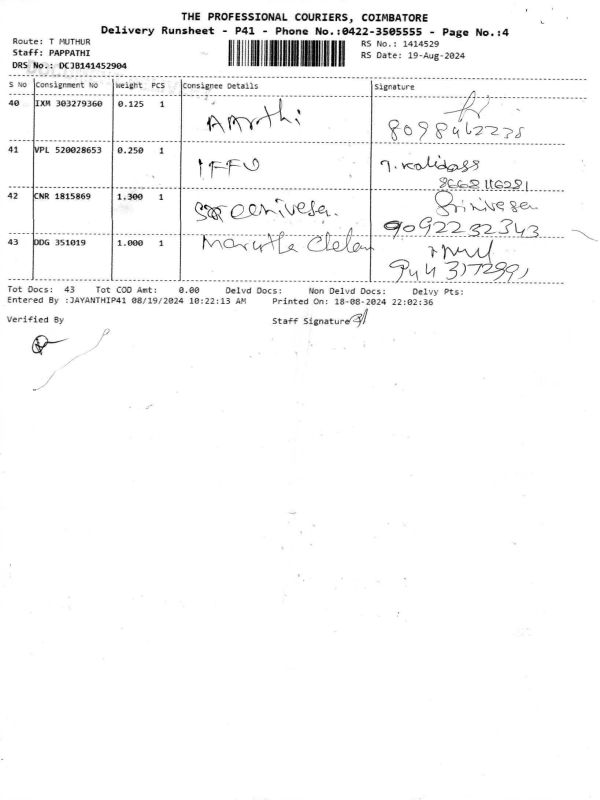 THE PROFESSIONAL COURIERS, COIMBATORE
Delivery Runsheet - P41 - Phone No.:0422-3505555 - Page No.:4
Route: T MUTHUR
Staff: PAPPATHI
DRS No.: DCJB141452904
RS No.: 1414529
RS Date: 19-Aug-2024
S No Consignment No Weight PCS Consignee Details Signature
40 IXM 303279360 0.125 1
8098462238
41 VPL 520028653 0.250 1 IFFU T. Kalidass
8668116281
42 CNR 1815869 1.300 1 Sreenivesan. Srinivasan
9092232343
43 DDG 351019 1.000 1 Marutha
Tot Docs: 43 Tot COD Amt: 0.00 Delvd Docs: Non Delvd Docs: Delvy Pts:
Entered By :JAYANTHIP41 08/19/2024 10:22:13 AM Printed On: 18-08-2024 22:02:36
Verified By Staff Signature